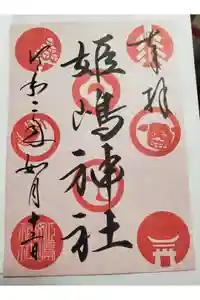 奉拝
姫嶋神社
令和三年如月十二日